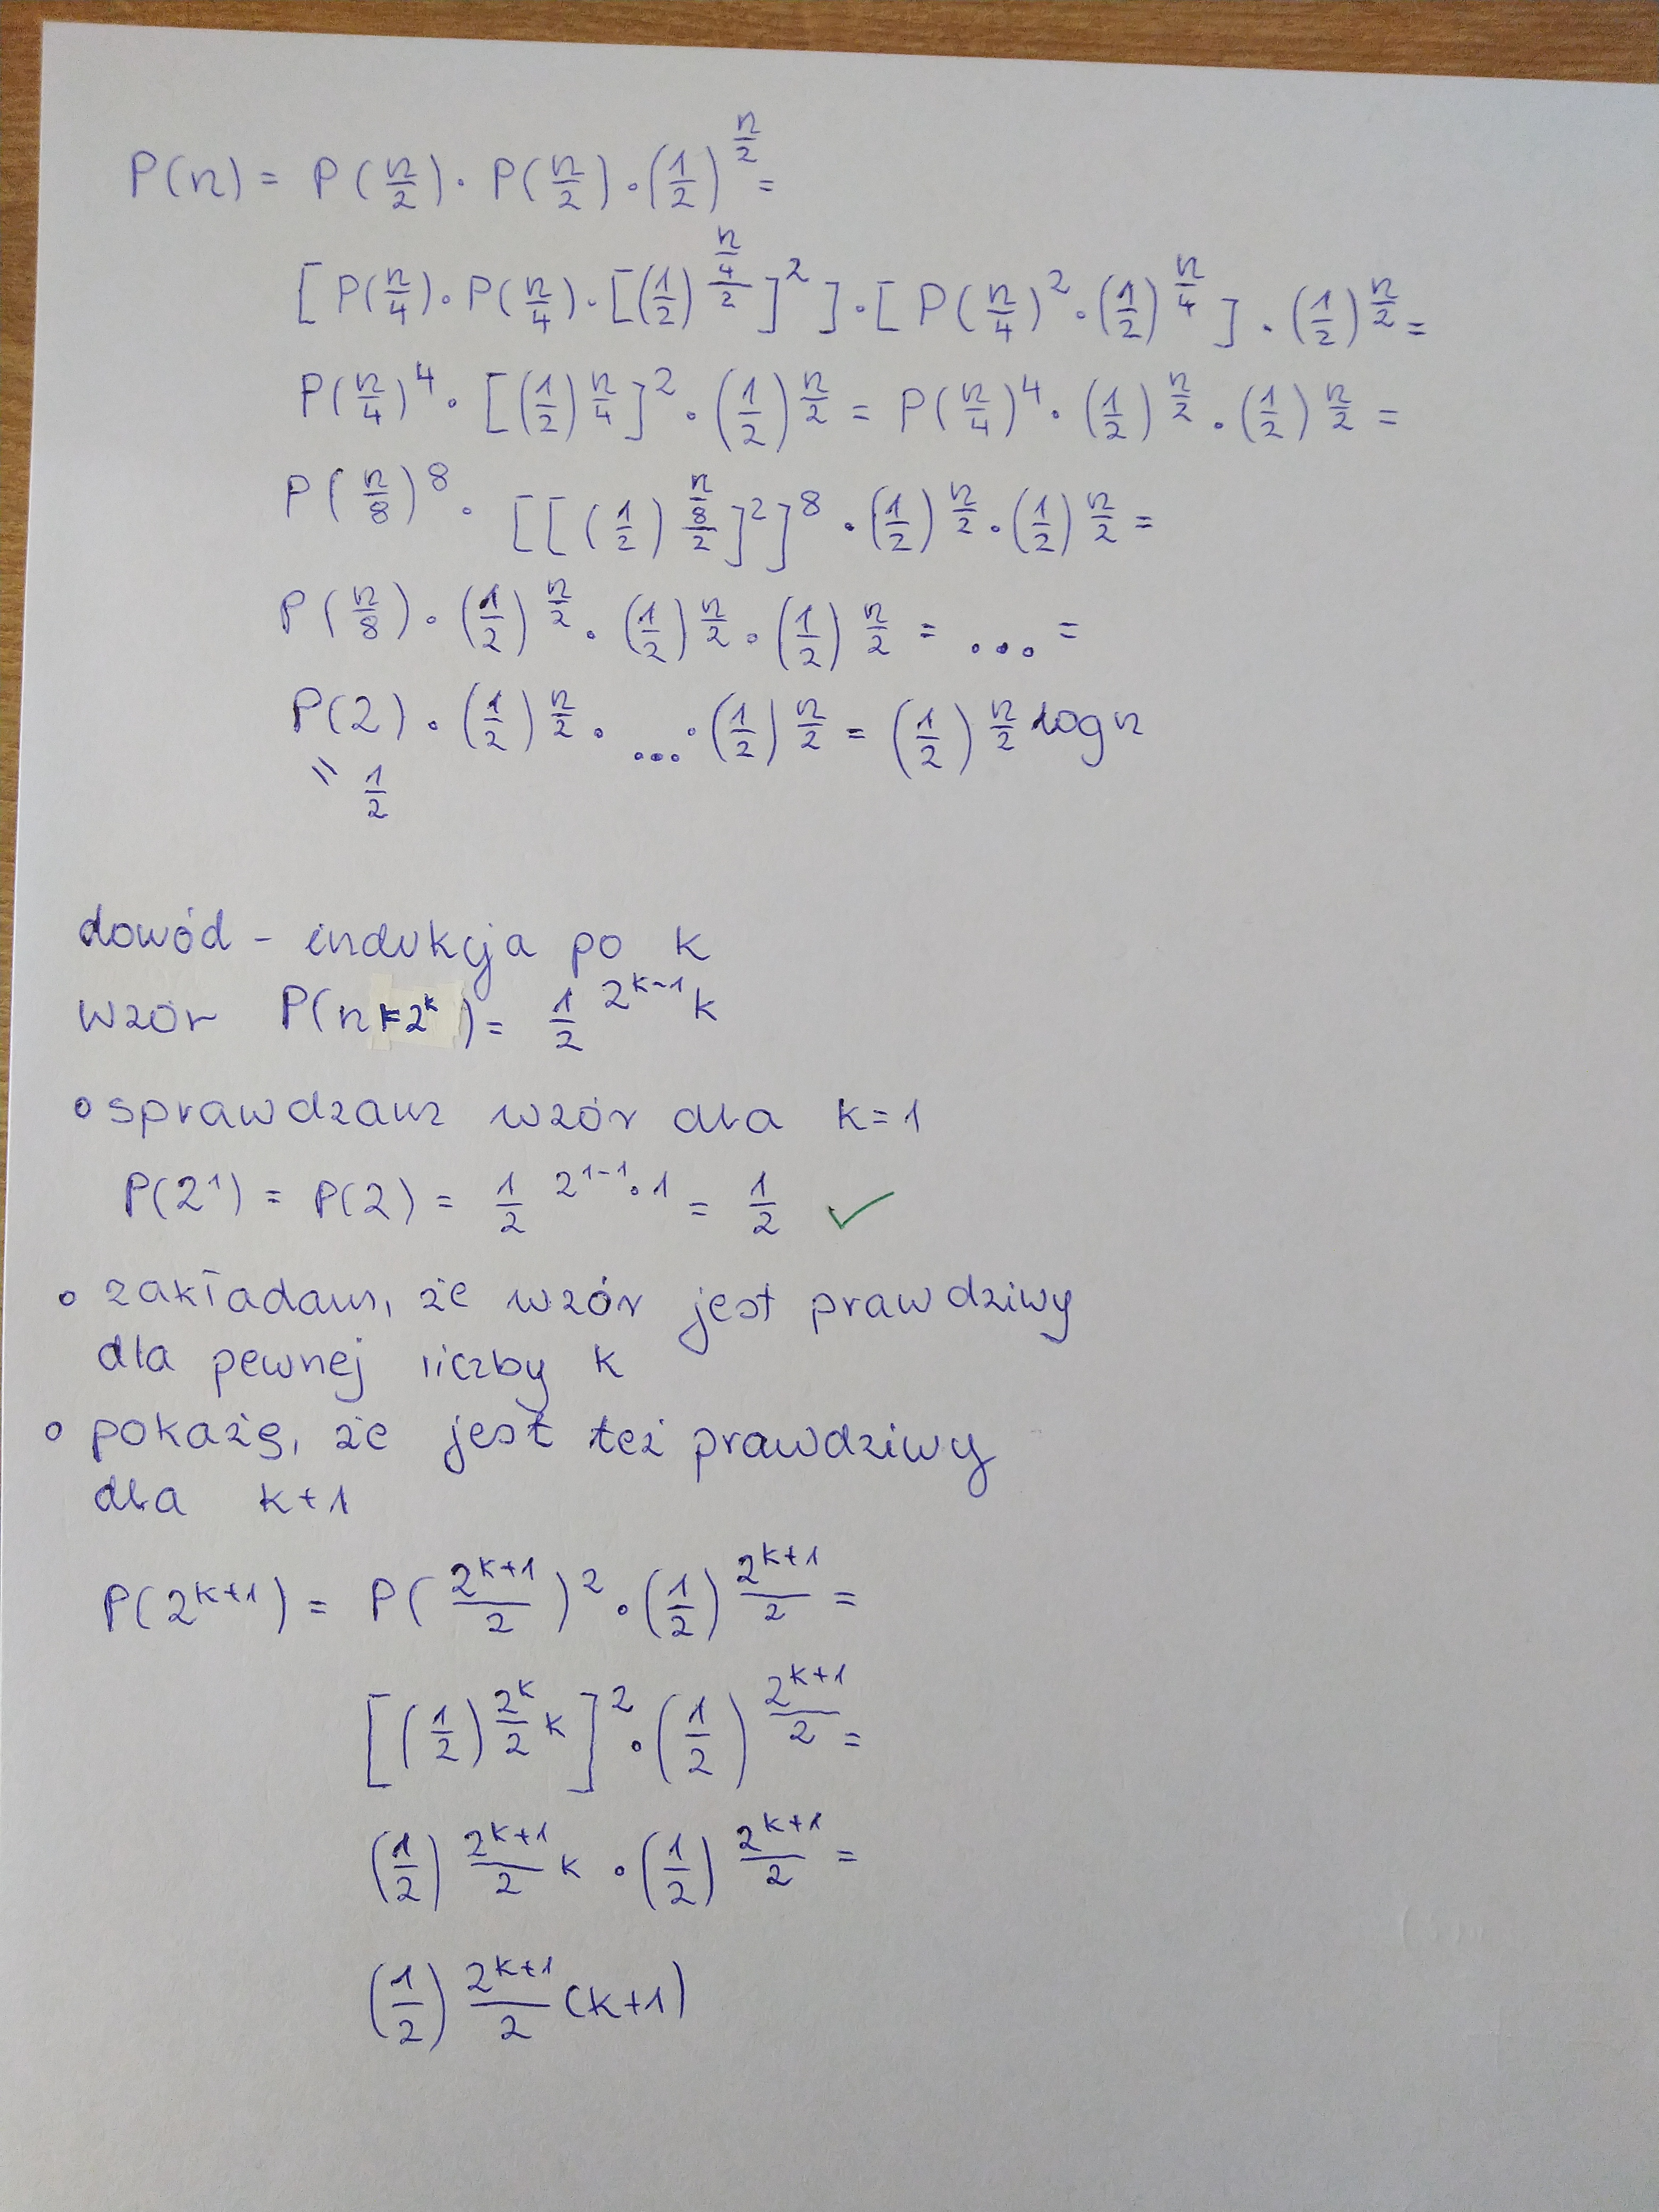 P(n) = P(n/2) · P(n/2) · (1/2)^(n/2) =
[P(n/4) · P(n/4) · [(1/2)^((n/4)/2)]^2] · [P(n/4)^2 · (1/2)^(n/4)] · (1/2)^(n/2) =
P(n/4)^4 · [(1/2)^(n/4)]^2 · (1/2)^(n/2) = P(n/4)^4 · (1/2)^(n/2) · (1/2)^(n/2) =
P(n/8)^8 · [[(1/2)^((n/8)/2)]^2]^8 · (1/2)^(n/2) · (1/2)^(n/2) =
P(n/8) · (1/2)^(n/2) · (1/2)^(n/2) · (1/2)^(n/2) = ... =
P(2) · (1/2)^(n/2) · ... · (1/2)^(n/2) = (1/2)^(n/2 log n)
= 1/2
dowód - indukcja po k
wzór P(n=2^k) = 1/2^(2^(k-1) k)
• sprawdzam wzór dla k=1
P(2^1) = P(2) = 1/2^(2^(1-1) · 1) = 1/2 ✓
• zakładam, że wzór jest prawdziwy
dla pewnej liczby k
• pokażę, że jest też prawdziwy
dla k+1
P(2^(k+1)) = P(2^(k+1)/2)^2 · (1/2)^(2^(k+1)/2) =
[(1/2)^(2^k/2 k)]^2 · (1/2)^(2^(k+1)/2) =
(1/2)^(2^(k+1)/2 k) · (1/2)^(2^(k+1)/2) =
(1/2)^(2^(k+1)/2 (k+1))